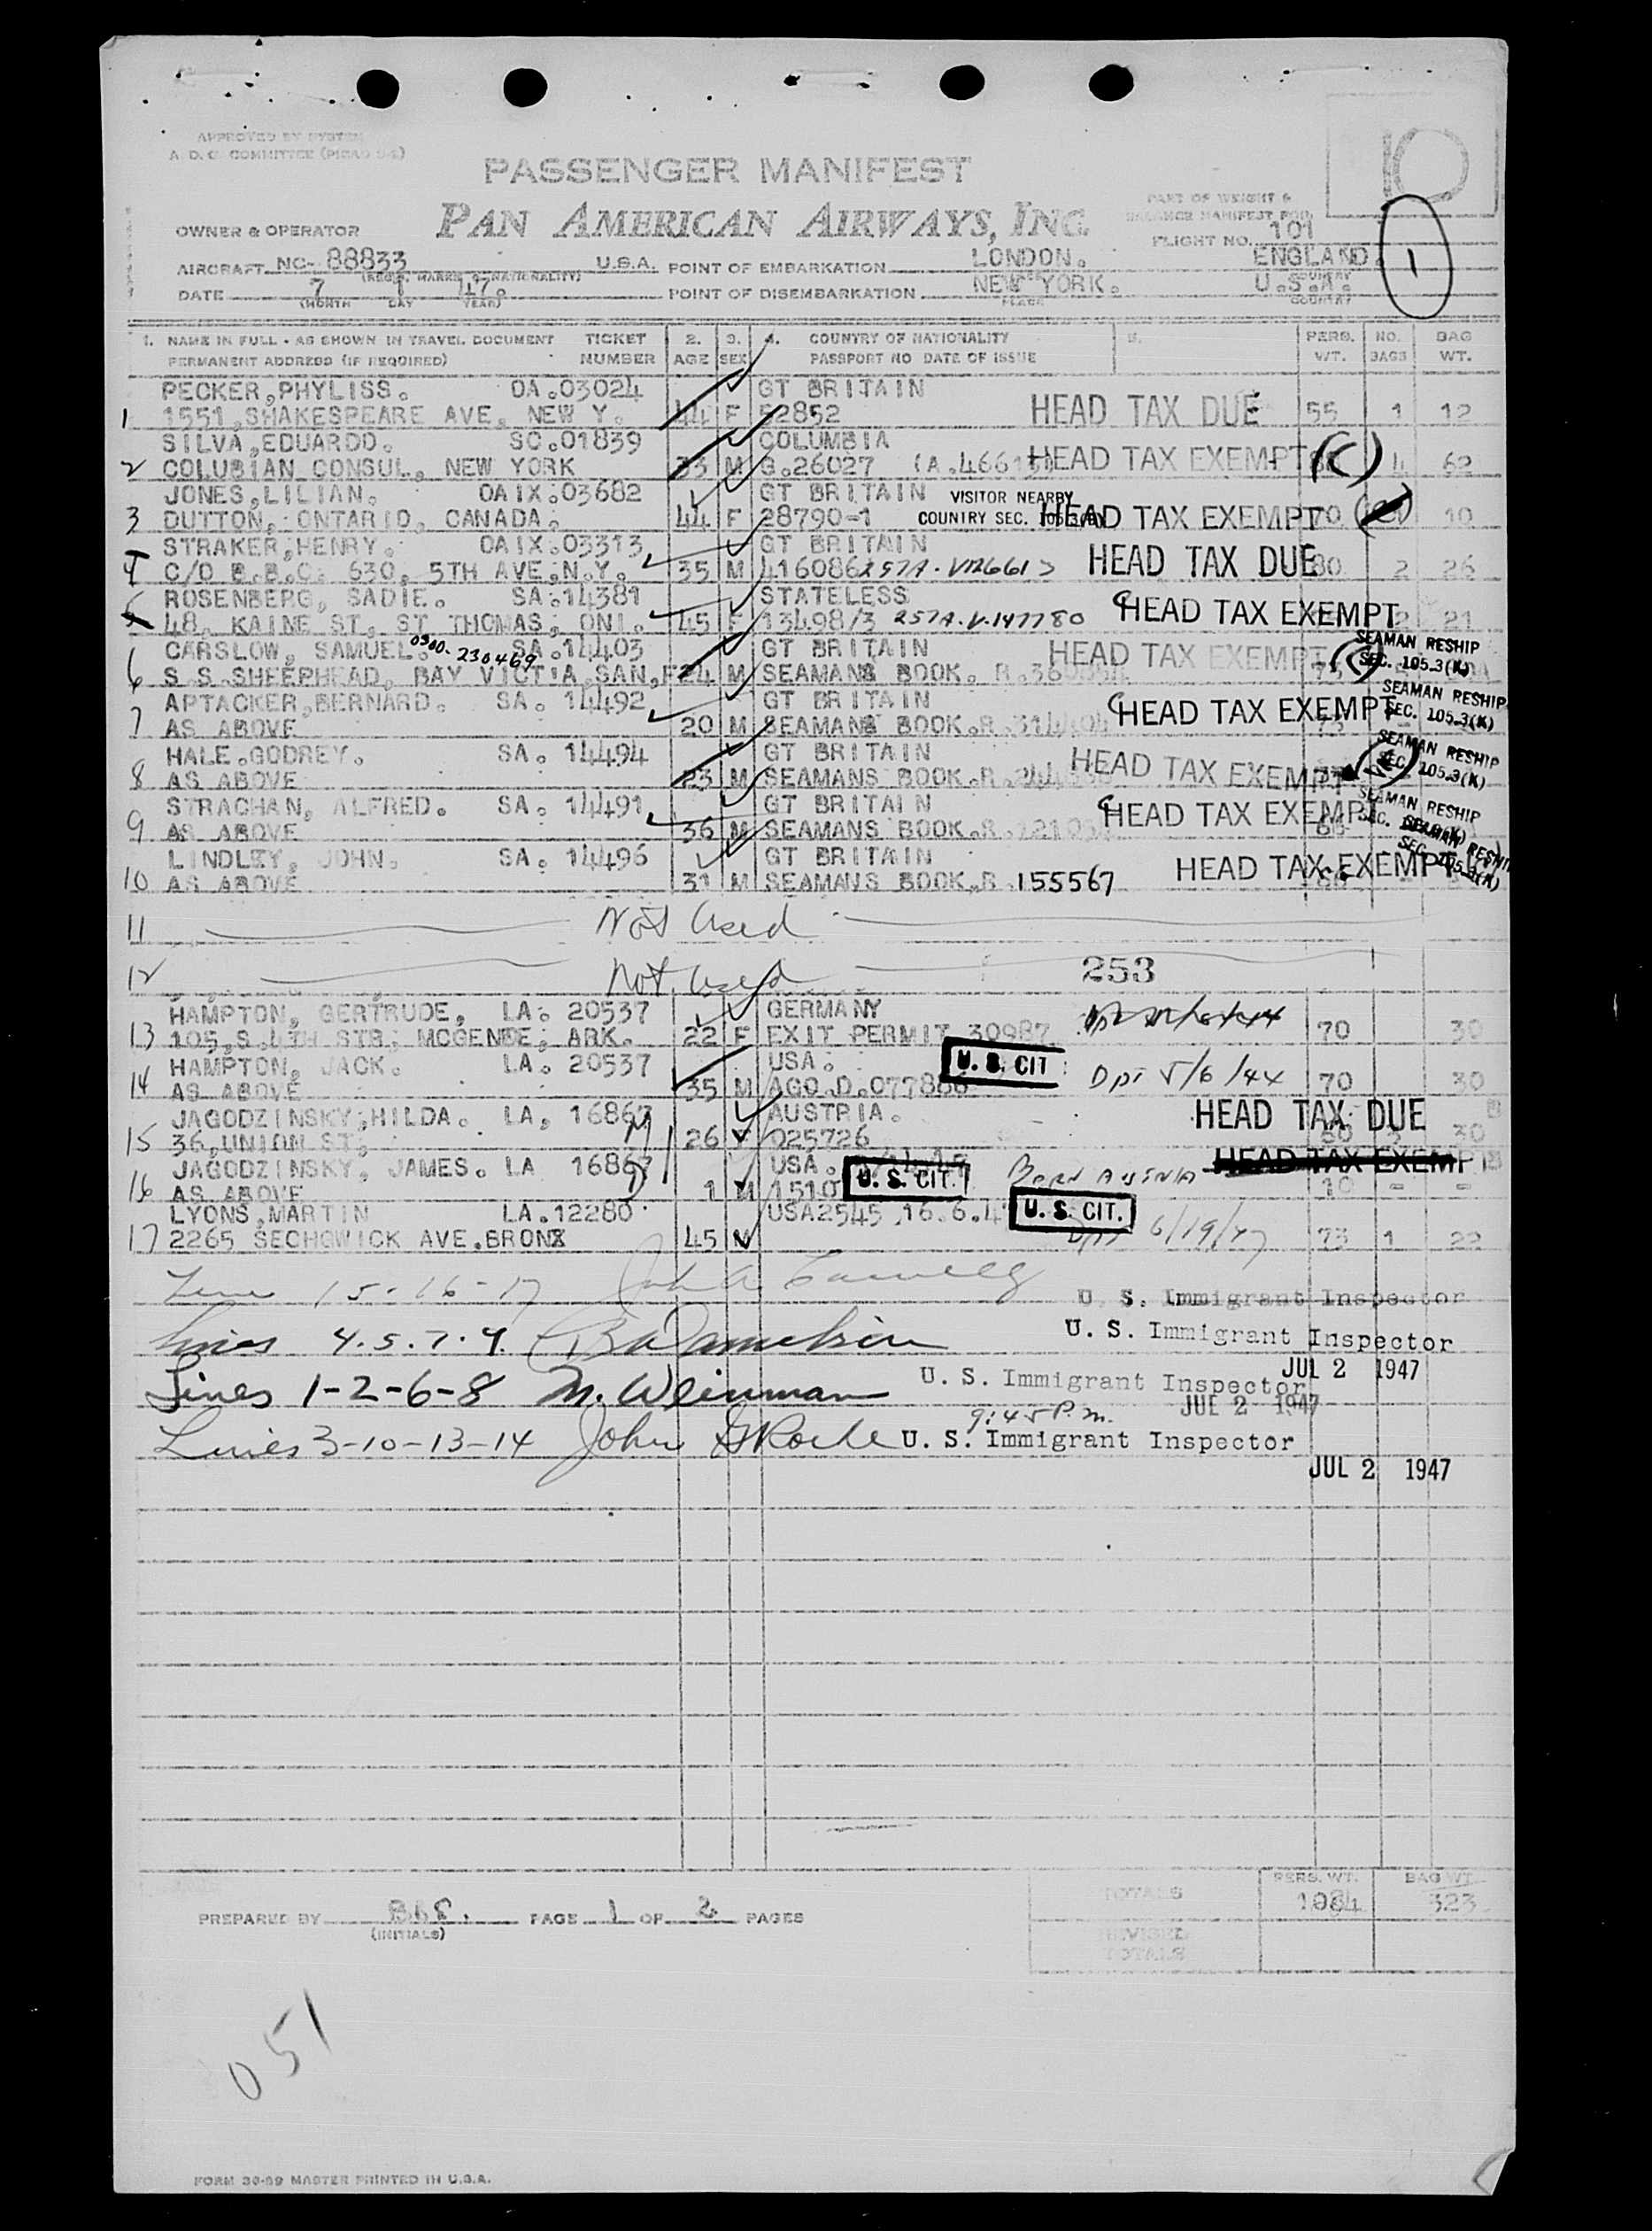 APPROVED BY SYSTEM
A. D. C. COMMITTEE
PASSENGER MANIFEST
PAN AMERICAN AIRWAYS, INC.
PART OF WEIGHT &
BALANCE MANIFEST FOR
10
1
OWNER & OPERATOR
FLIGHT NO. 101
AIRCRAFT NC- 88833 U.S.A. POINT OF EMBARKATION LONDON. ENGLAND.
(REG. MARKS & NATIONALITY) COUNTRY
DATE 7 1 47. POINT OF DISEMBARKATION NEW YORK. U.S.A.
(MONTH DAY YEAR) PLACE COUNTRY
1. NAME IN FULL - AS SHOWN IN TRAVEL DOCUMENT TICKET 2. 3. 4. COUNTRY OF NATIONALITY 5. PERS. NO. BAG
PERMANENT ADDRESS (IF REQUIRED) NUMBER AGE SEX PASSPORT NO DATE OF ISSUE WT. BAGS WT.
PECKER,PHYLISS. OA.03024 GT BRITAIN
1 1551,SHAKESPEARE AVE, NEW Y. 44 F 52852 HEAD TAX DUE 55 1 12
SILVA,EDUARDO. SC.01839 COLUMBIA
2 COLUBIAN CONSUL, NEW YORK 33 M G.26027 HEAD TAX EXEMPT (C) 4 62
JONES,LILIAN. OAIX.03682 GT BRITAIN VISITOR NEARBY
3 DUTTON, ONTARIO, CANADA. 44 F 28790-1 COUNTRY SEC. HEAD TAX EXEMPT 70 10
STRAKER,HENRY. OAIX.03313 GT BRITAIN
4 C/O B.B.C. 630, 5TH AVE,N.Y. 35 M 416086 HEAD TAX DUE 80 2 26
ROSENBERG, SADIE. SA.14381 STATELESS
48, KAINE ST, ST THOMAS, ONT. 45 F 13498/3 257A.V.147780 HEAD TAX EXEMPT 2 21
CARSLOW, SAMUEL. 0300-230469 SA.14403 GT BRITAIN HEAD TAX EXEMPT SEAMAN RESHIP
6 S.S.SHEEPHEAD, BAY VICTIA,SAN,F 24 M SEAMANS BOOK. R. 75 SEC. 105.3(K)
APTACKER,BERNARD. SA. 14492 GT BRITAIN SEAMAN RESHIP
7 AS ABOVE 20 M SEAMANS BOOK.R. HEAD TAX EXEMPT SEC. 105.3(K)
HALE.GODREY. SA. 14494 GT BRITAIN SEAMAN RESHIP
8 AS ABOVE 23 M SEAMANS BOOK.R. HEAD TAX EXEMPT SEC. 105.3(K)
STRACHAN, ALFRED. SA. 14491 GT BRITAIN SEAMAN RESHIP
9 AS ABOVE 36 M SEAMANS BOOK.R. HEAD TAX EXEMPT SEC.
LINDLEY, JOHN. SA. 14496 GT BRITAIN SEAMAN RESHIP
10 AS ABOVE 31 M SEAMANS BOOK.R.155567 HEAD TAX EXEMPT SEC. 105.3(K)
11 Not Used
12 Not Used 253
HAMPTON, GERTRUDE, LA. 20537 GERMANY
13 105,S.4TH STR. MCGENDE, ARK. 22 F EXIT PERMIT 30987. 70 30
HAMPTON, JACK. LA. 20537 USA. U. S. CIT
14 AS ABOVE 35 M AGO.D.077886 Dpt 5/6/44 70 30
JAGODZINSKY,HILDA. LA. 16867 AUSTRIA. HEAD TAX DUE
15 36,UNION ST, 26 F 025726 30
JAGODZINSKY, JAMES. LA 16867 USA. U. S. CIT. HEAD TAX EXEMPT
16 AS ABOVE 1 M 1510 10 - -
LYONS,MARTIN LA.12280 USA2545,16.6.4 U. S. CIT.
17 2265 SECHGWICK AVE.BRONX 45 M 6/19/47 73 1 22
Line 15-16-17
U. S. Immigrant Inspector
Lines 4.5.7.9. U. S. Immigrant Inspector
JUL 2 1947
Lines 1-2-6-8 M. Weinman U. S. Immigrant Inspector
JUL 2 1947
9:45 P.m.
Lines 3-10-13-14 John G Roche U. S. Immigrant Inspector
JUL 2 1947
TOTALS PERS. WT. BAG WT.
323
PREPARED BY PAGE 1 OF 2 PAGES
(INITIALS)
REVISED
TOTALS
051
FORM 30-59 MASTER PRINTED IN U.S.A.